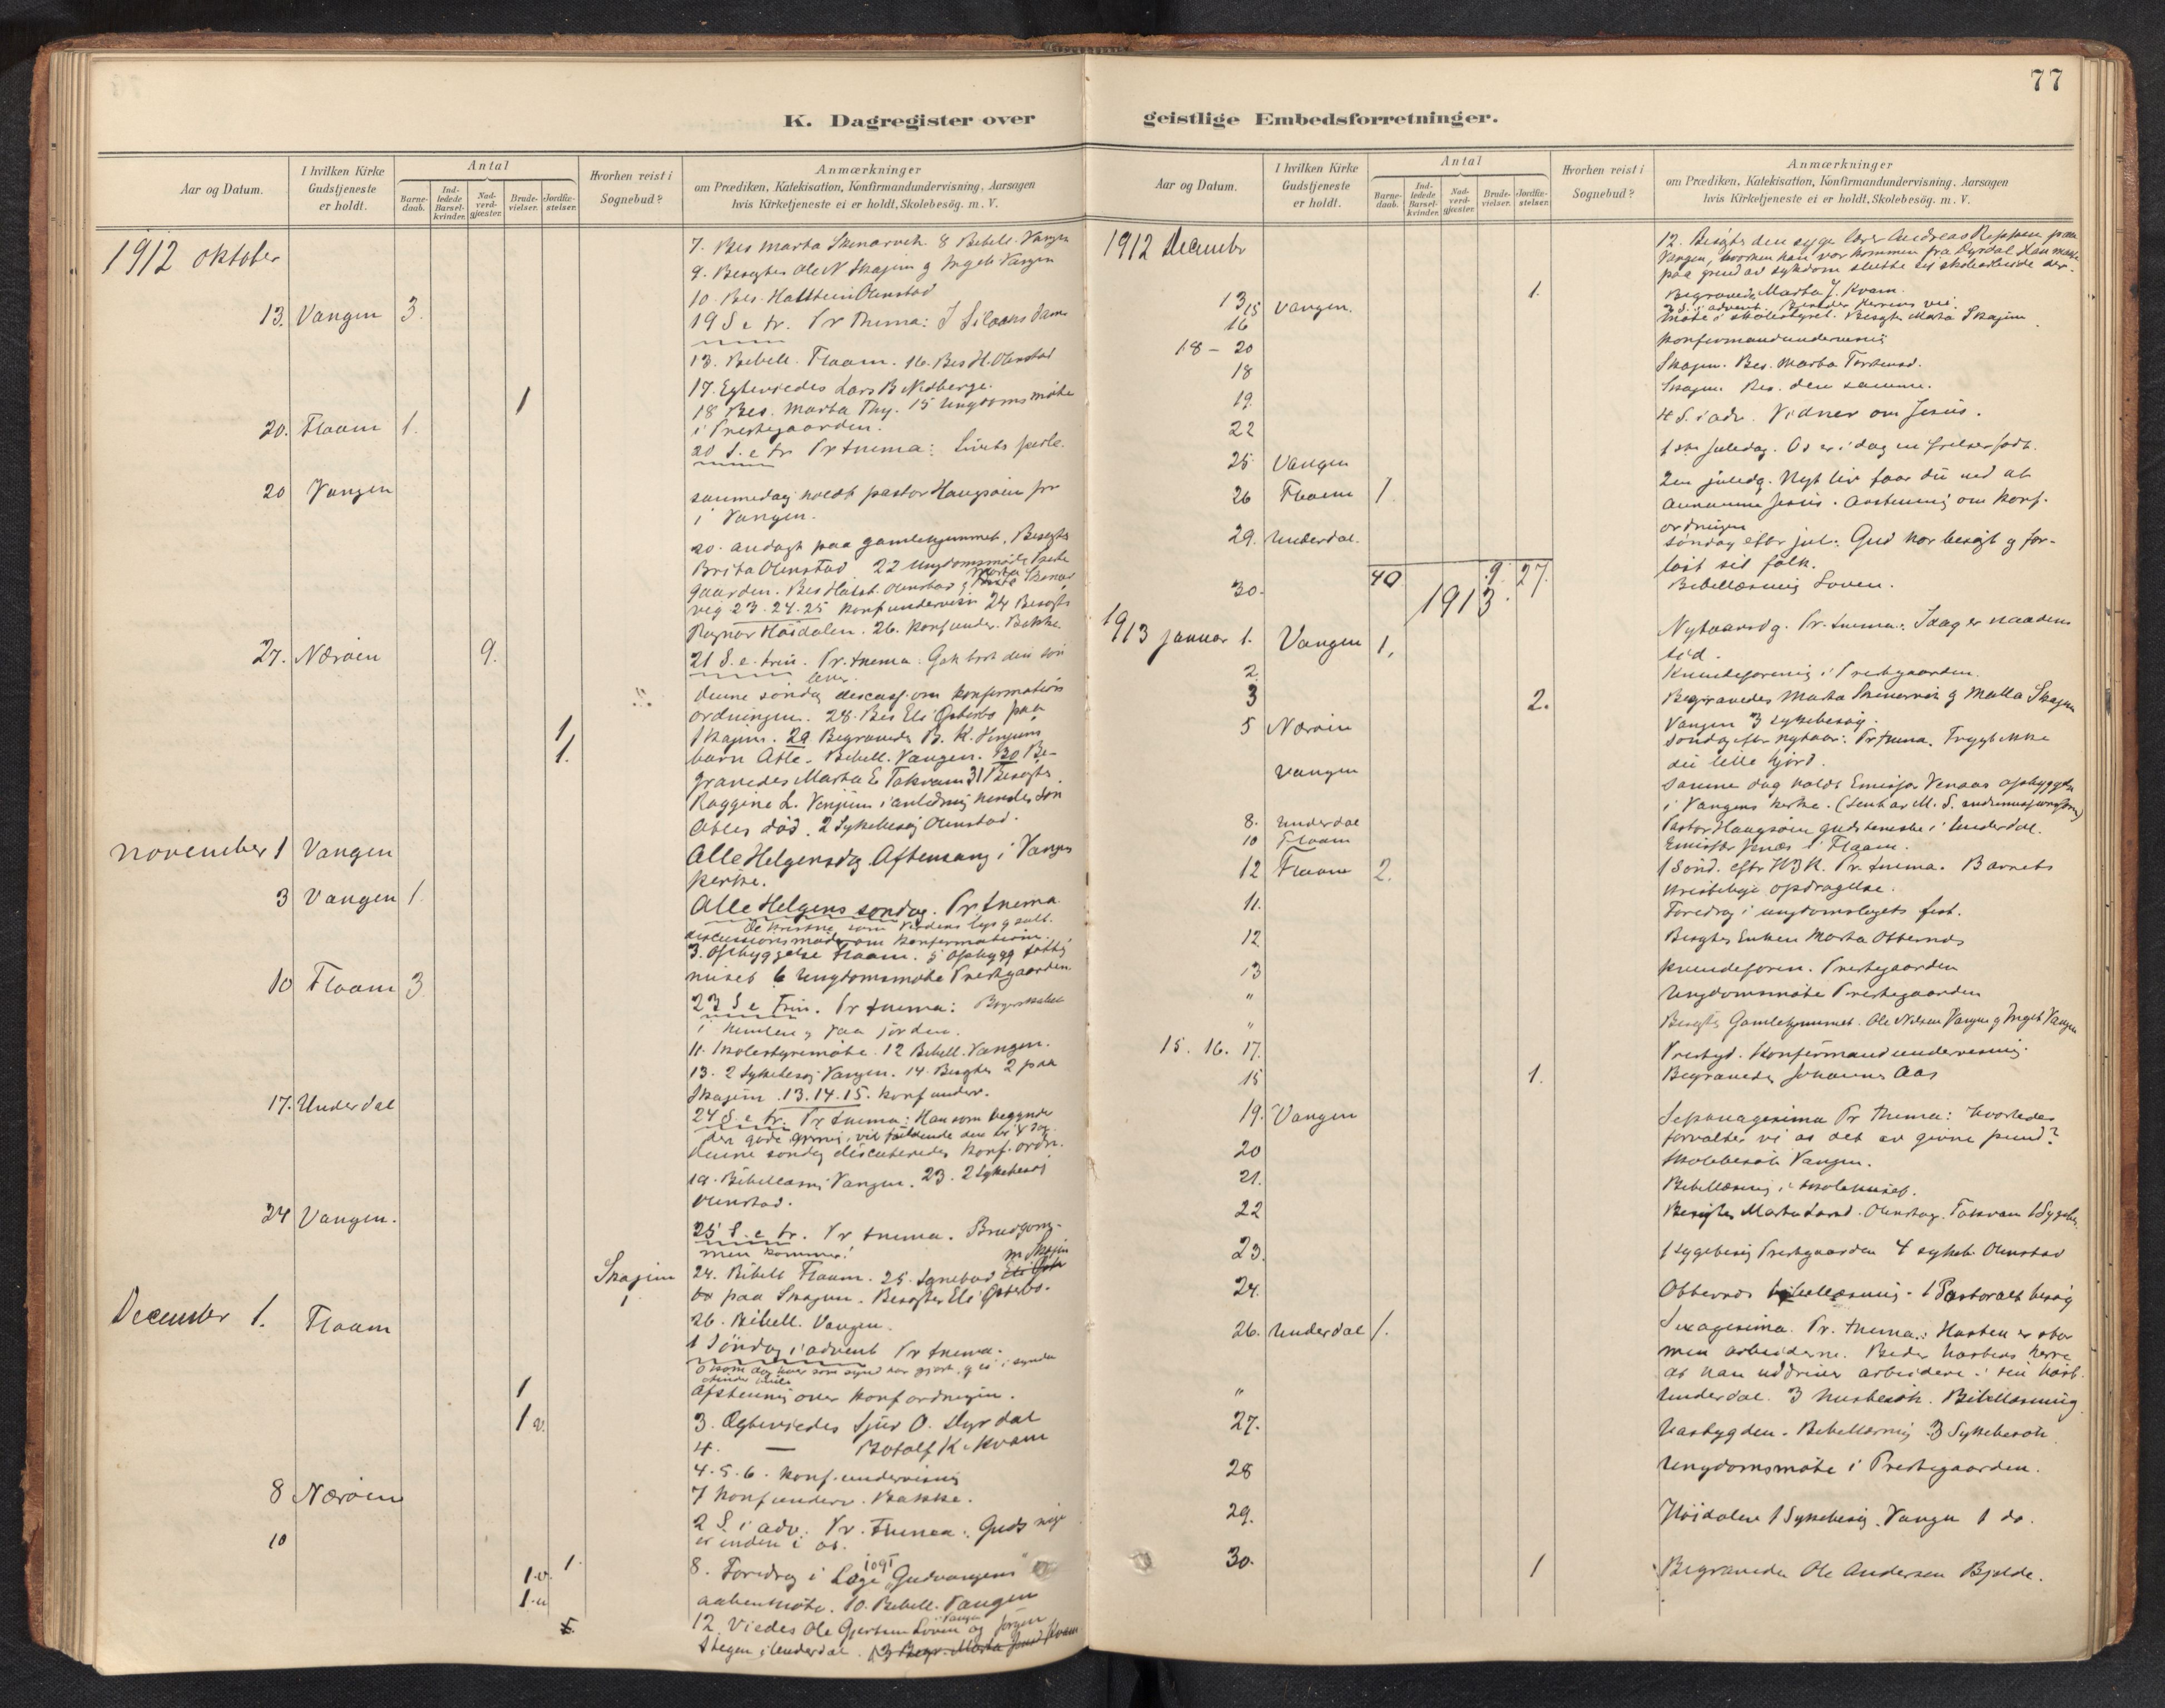 77
K. Dagregister over
geistlige Embedsforretninger.
Aar og Datum.
I hvilken Kirke Gudstjeneste er holdt.
Antal
Barne-daab.
Ind-ledede Barsel-kvinder.
Nad-verd-gjæster.
Brude-vielser.
Jordfæ-stelser.
Hvorhen reist i Sognebud?
Anmærkninger
om Prædiken, Katekisation, Konfirmandundervisning, Aarsagen
hvis Kirketjeneste ei er holdt, Skolebesøg. m. V.
1912 oktober
7. Bes Marta Skenarveh. 8 Bibell. Vangen
9. Besøgtes Ole N Skajem g Ingeb Vangen
10. Bes. Hallstein Olenstad
13. Vangen 3.
19 S e tr. Pr thema: I Siloams Dam
13. Bibell. Flaam. 16. Bes H. Olenstad
17. Egteviedes Lars B Nedberge.
1
18 Bes. Marta Thy. 15 Ungdomsmøte
i Prestegaarden.
20. Flaam 1.
20 S. e tr Pr thema: Livets perle.
20 Vangen
sammedag holdt pastor Haugsøen pr
i Vangen.
20. andagt paa gamlehjemmet. Besøgtes
Brita Olenstad 22 Ungdomsmøte Preste
gaarden. Bes Hallst. Olenstad g Marta Skenar
veg 23.24.25 konfundervisn 24 Besøgts
Ragnar Høidalen. 26. konfunder. Bakke.
27. Nærøen 9.
21 S. e. trin. Pr. thema. Gak bort din søn
lever.
denne søndag discuss. om konfirmations
ordningen. 28. Bes Eli Østerbø paa
Skajem. 29 Begravedes B. K. Venjums
1
barn Atle. Bibell. Vangen. 30 Be-
1.
gravedes Marta E Takvam 31 Besøgtes
Raggine L. Venjum i anledning hendes søn
Atles død. 2 Sykebesøg Olenstad.
november 1 Vangen
Alle Helgensdag Aftensang i Vangen
kirke.
3 Vangen 1.
Alle Helgens søndag. Pr thema
De kristne som Verdens lys g salt.
discussionsmøde om konfirmation.
3. Opbyggelse Flaam. 5 Opbygg fattig
huset 6 Ungdomsmøte Prestegaarden.
10 Flaam 3
23 S e Trin. Pr thema: Borgerskabet
i himlen g paa jorden.
11. Skolestyremøte. 12 Bibell. Vangen.
13. 2 Sykebesøg Vangen. 14. Besøgtes 2 paa
Skajem. 13.14.15. konfunder.
17. Underdal
24 S. e tr. Pr thema: Han som begyndte
den gode gjerning, vil fuldende den til J K dag.
denne søndag discuteredes konf. ordn.
19. Bibellæsn Vangen. 23. 2 Sykebesøg
Olenstad.
24 Vangen.
25 S. e tr. Pr thema. Brudgom-
men kommer!
Skajem
24. Bibell Flaam. 25. Sognebud M Skajem
1
bø paa Skajem. Besøgtes Eli Østerbø.
26. Bibell. Vangen.
December 1. Flaam
1 Søndag i advent Pr thema.
1
Afstemning over konf ordningen.
1 v.
3. Egteviedes Sjur O. Dyrdal
4. — Botolf K. Kvam
4.5.6. konf. undervisning
7 konfunderv. Bakke.
8 Nærøen
2 S. i adv. Pr. thema: Guds rige
er inden i os.
10
1.v. 1.
8. Foredrag i Loge "Gudvangens"
1.v
aabentmøte. 10. Bibell. Vangen
12 Viedes Ole Gjertsen Loven og Jørgen
Stegen i Underdal. 13 Begr. Marta Kvam
Aar og Datum.
I hvilken Kirke Gudstjeneste er holdt.
Antal
Barne-daab.
Ind-ledede Barsel-kvinder.
Nad-verd-gjæster.
Brude-vielser.
Jordfæ-stelser.
Hvorhen reist i Sognebud?
Anmærkninger
om Prædiken, Katekisation, Konfirmandundervisning, Aarsagen
hvis Kirketjeneste ei er holdt, Skolebesøg. m. V.
1912 December
12. Besøgtes den syge lærer Andreas paa
Vangen, hvorhen han var kommen fra Dyrdal Han maatte
paa grund av sykdom slutte sit skolearbeide der.
13 1. Begravedes Marta J. Kvam.
15 Vangen. 3 S. i advent. Bereder Herrens vei.
16 Møte i skolestyret. Besøgt Marta Skajem
18 – 20 konfirmandundervisning
18 Skajem. Bes. Marta
19. Skajem Bes. den samme.
22 4 S. i adv. Vidner om Jesus.
25. Vangen 1ste juledag. Os er i dag en frelser født.
26 Flaam 1. 2en juledg. Nyt liv faar du ved at
annamme Jesus. Avstemning om konf.
ordningen
29. Underdal. Søndag efter jul: Gud har besøgt g for-
løst sit folk.
40 9. 27.
30. Bibellæsning Loven.
1913
1913 januar 1. Vangen 1. Nytaarsdg. Pr. thema: Idag er naadens
tid.
2. Kvindeforening i Prestegaarden.
3 2. Begravedes Marta Skenarveh g Malla Skajem
Vangen 3 sykebesøg.
5 Nærøen Søndag efter nytaar: Pr thema. Frygt ikke
du lille hjord.
Vangen Samme dag holdt Emissær Venaas opbyggelse
i Vangens kirke.
8. Underdal Pastor Haugsøen gudstjeneste i Underdal.
10 Flaam Emissær i Flaam.
12 Flaam 2. 1 Sønd. eftr H3K. Pr. thema. Barnets
kristelige opdragelse.
11. Foredrag i ungdomslagets fest.
12 Besøgtes Enken Marta Otternes
13 kvindeforen. Prestegaarden
" Ungdomsmøte Prestegaarden
" Besøgtes Gamlehjemmet. Ole Nilsen Vangen g Ingeb Vangen
15. 16. 17. Konfirmandundervisning.
15 1. Begravedes Johannes Aas
19. Vangen Septuagesima Pr thema: hvorledes
forvalter vi os det av givne pund?
20 Skolebesøk Vangen.
21. Bibellæsning i skolehuset.
22 Besøgtes Marta Olenstag. Takvam 1 Sygebes.
23. 1 sygebesøg Prestegaarden 4 sykeb. Olenstad
24. Otternes bibellæsning. 1 Pastoralt besøg
26. Underdal 1. Sexagesima. Pr. thema: Høsten er stor
men arbeiderne. Beder høstens herre
at han uddriver arbeidere i sin høst.
" Underdal. 3 husbesøk. Bibellæsning
27. Bibellæsning 3 Sykebesøk
28 Ungdomsmøte i Prestegaarden.
29. Høidalen 1 Sykebesøg. Vangen 1 do.
30. 1 Begravedes Ole Andersen Bjelde.